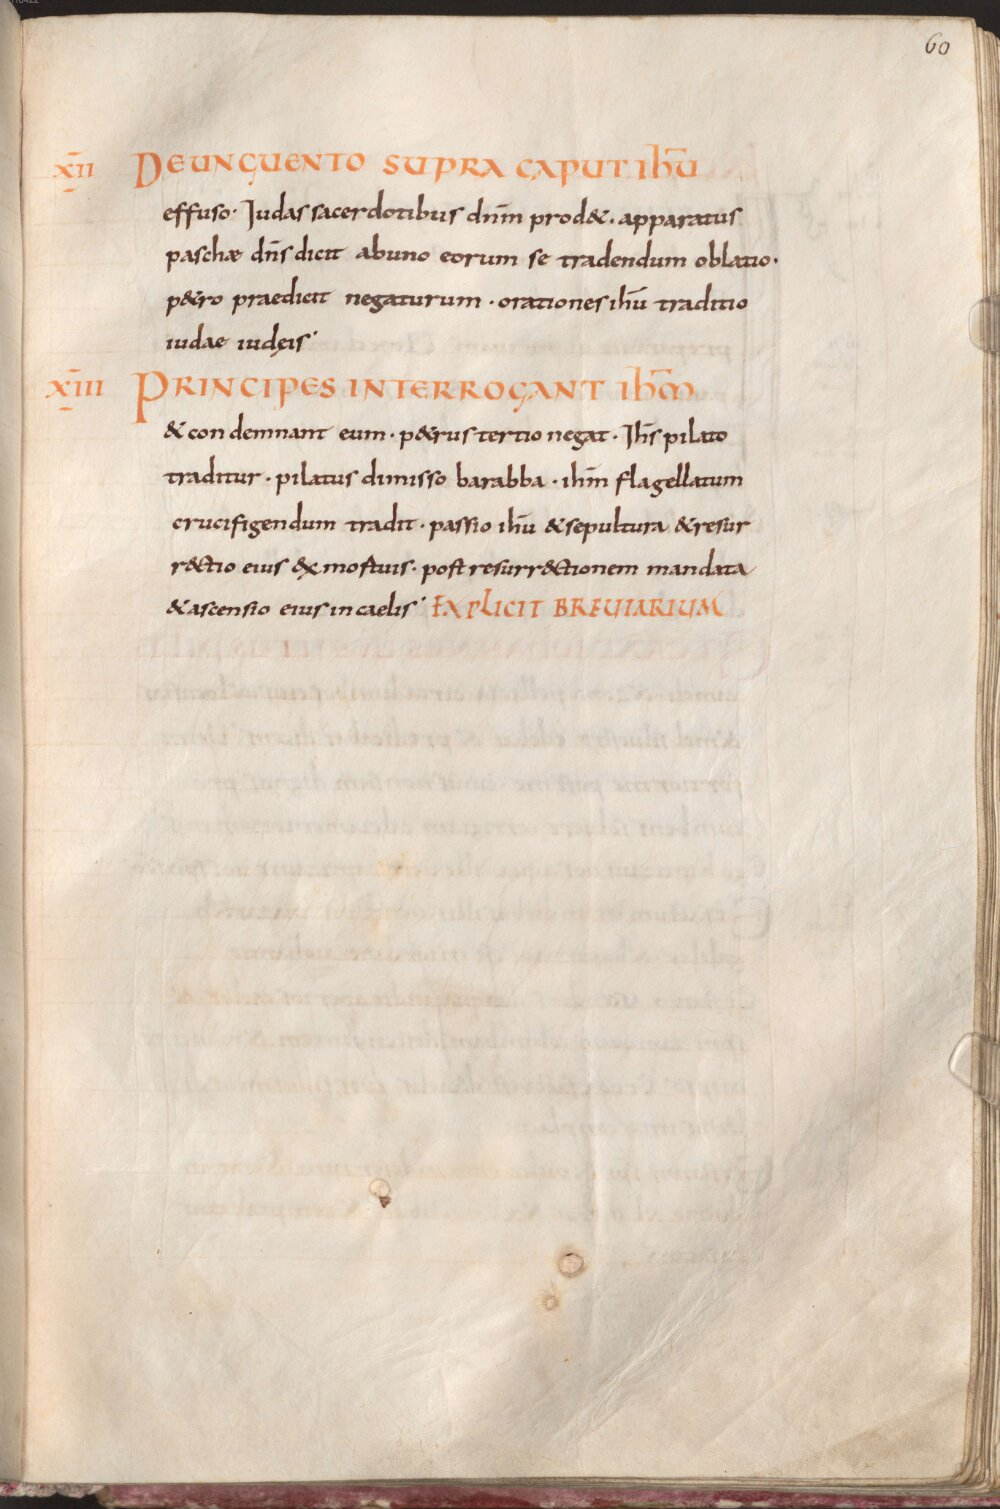 60
XII DE UNGUENTO SUPRA CAPUT IHŪ
effuso · Judas sacerdotibus dnm̄ prod& · apparatus
paschæ dn̄s dicit ab uno eorum se tradendum oblatio ·
p&ro praedicit negaturum · orationes ihū traditio
iudae iudęis ·
XIII PRINCIPES INTERROGANT IHM̄
& condemnant eum · p&rus tertio negat · Jhs̄ pilato
traditur · pilatus dimisso barabba · ihm̄ flagellatum
crucifigendum tradit · passio ihū & sepultura & resur
r&ctio eius &x mortuis · post resurr&ctionem mandata
& ascensio eius in caelis · EXPLICIT BREUIARIUM